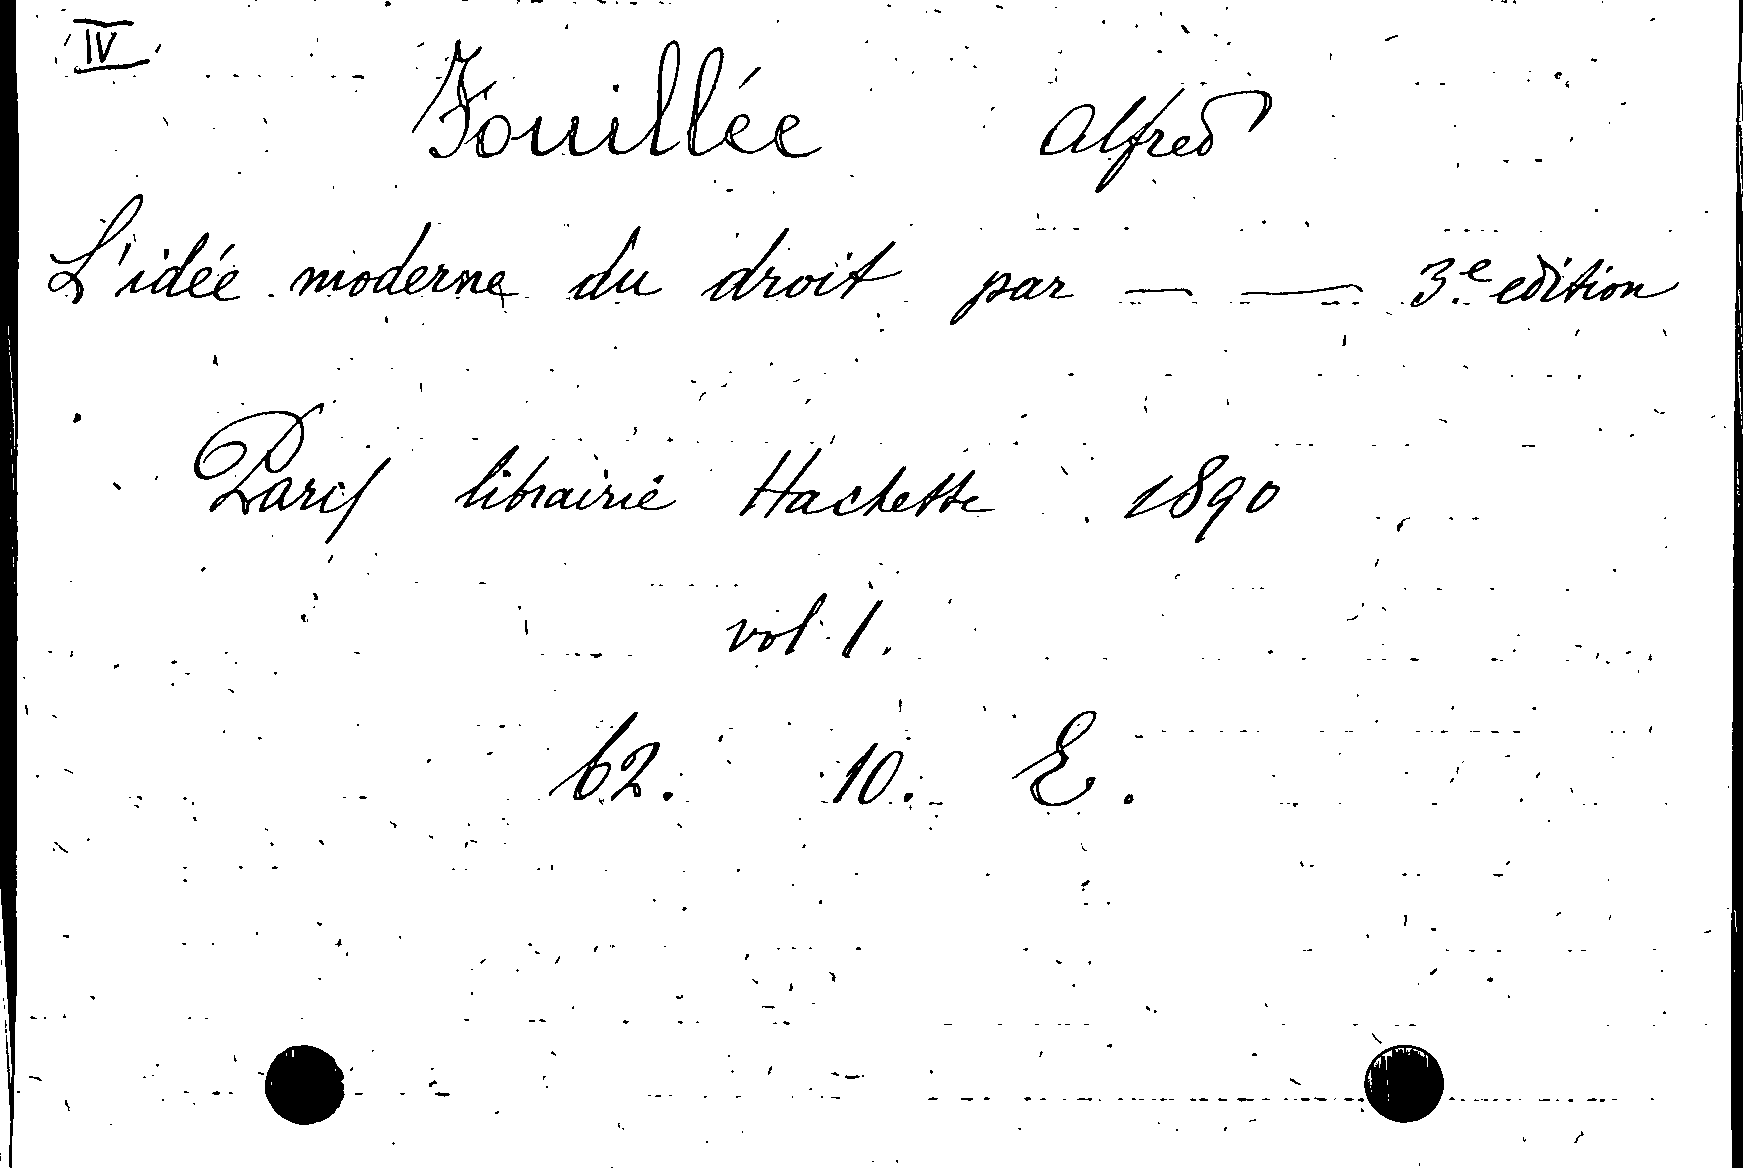 IV
Fouillée Alfred
L'idée moderne du droit par — — 3.e edition
Paris librairie Hachette 1890
vol. 1.
62. 10. E.